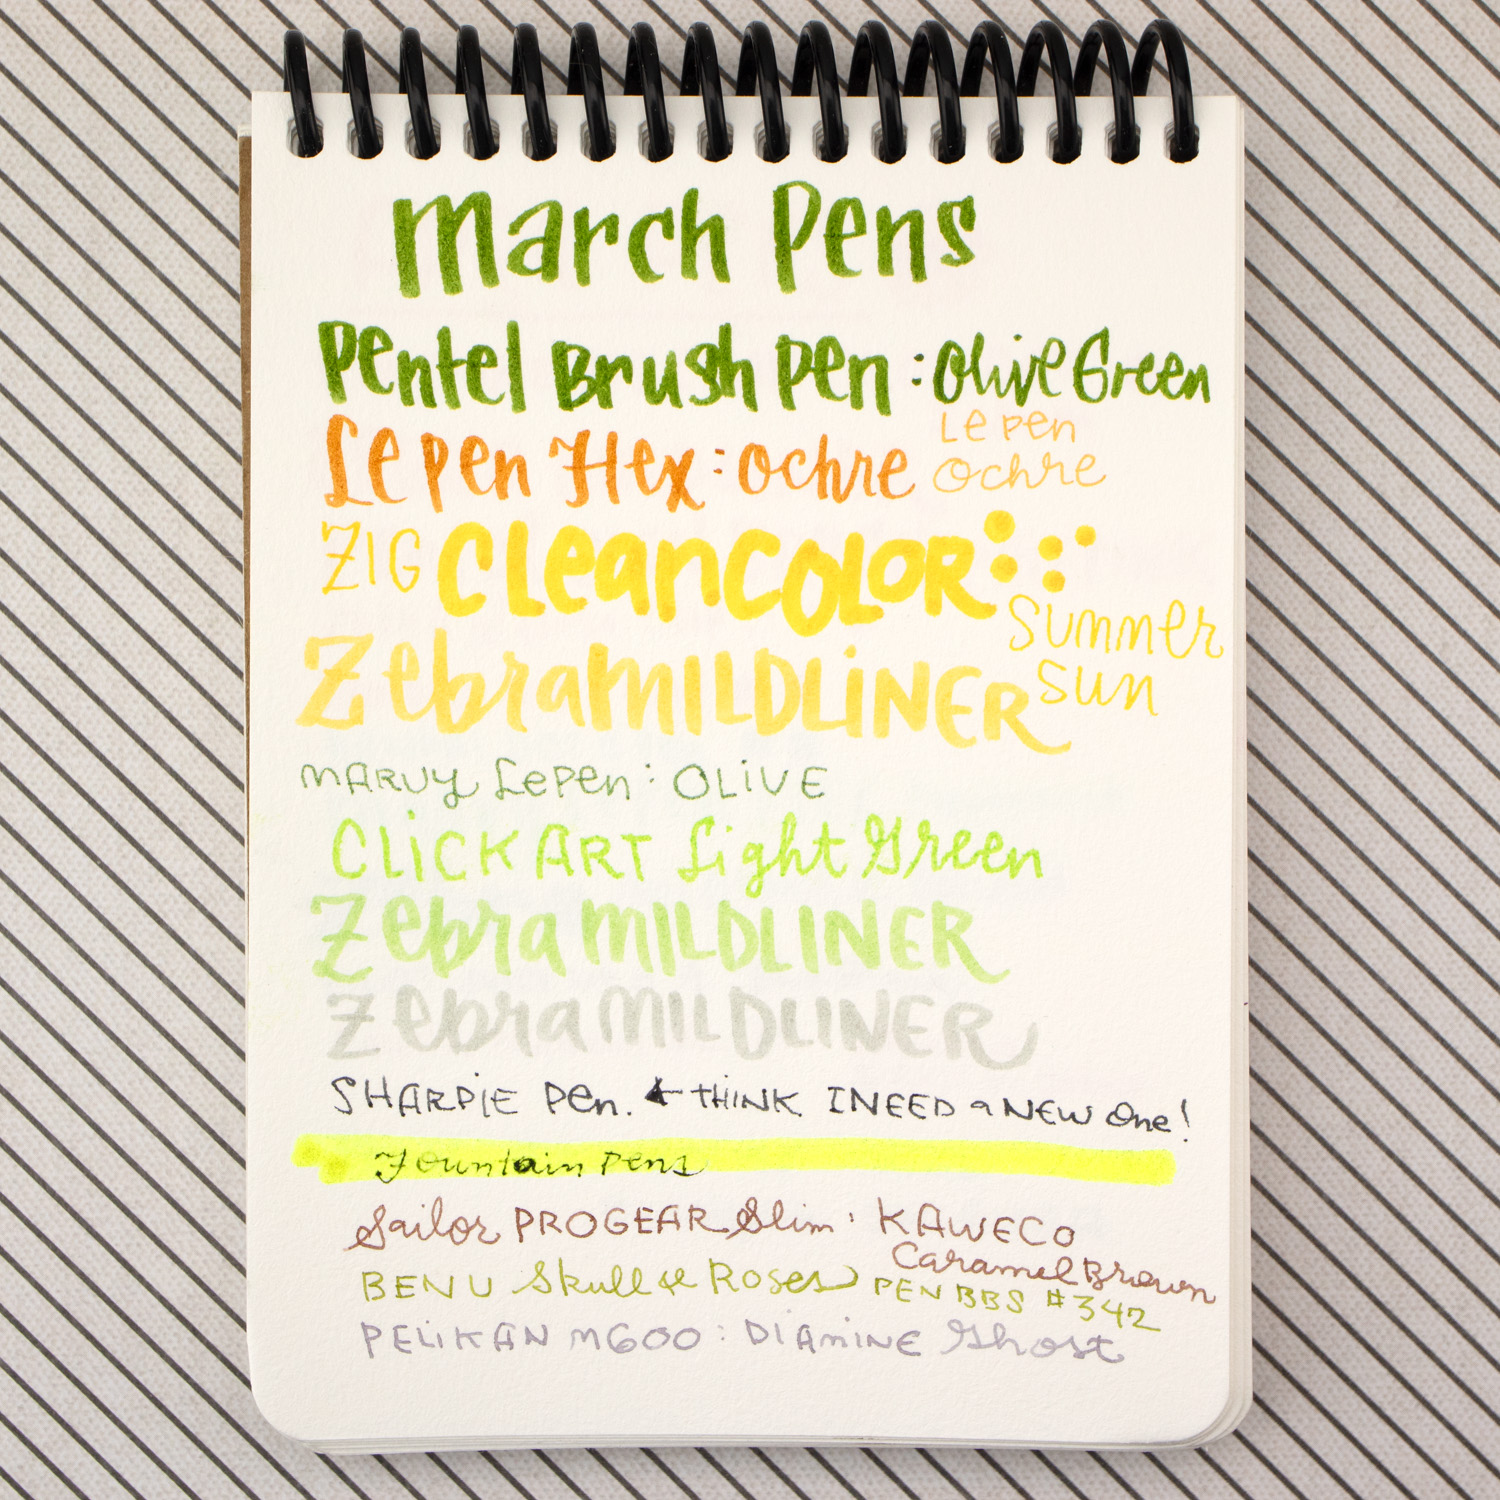 March Pens
Pentel Brush Pen: Olive Green
Le Pen Hex: Ochre
Le Pen
Ochre
ZIG CleanCOLOR
Summer
Sun
Zebra MILDLINER
MARVY Le Pen: OLIVE
CLiCKART Light Green
Zebra MILDLINER
Zebra MILDLINER
SHARPIE Pen. ← THINK I NEED a NEW One!
Fountain Pens
Sailor PROGEAR Slim: KAWECO
Caramel Brown
BENU Skull & Roses PEN BBS #342
PELIKAN M600: DIAMINE Ghost